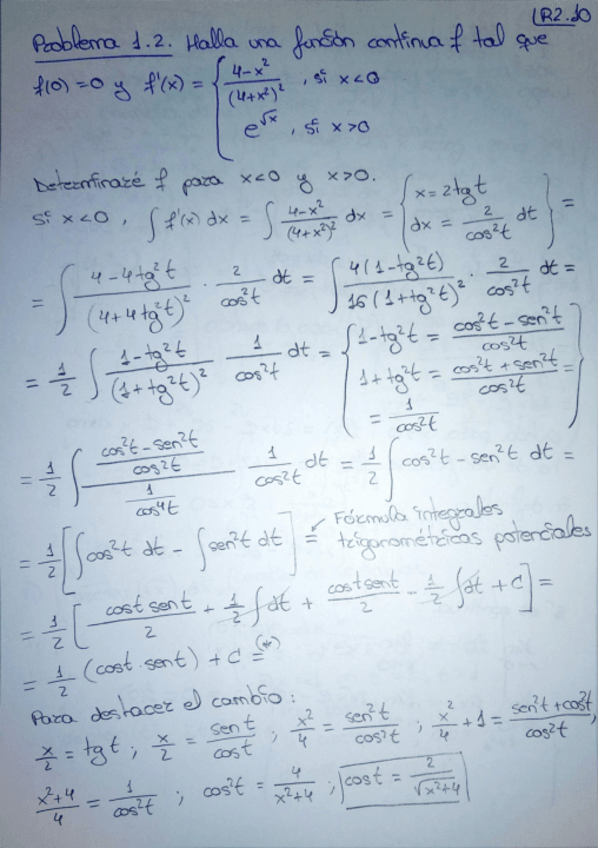 LR2.10
Problema 1.2. Halla una función continua f tal que
f(0)=0 y f'(x) = { (4-x²)/(4+x²)² , si x<0
e^√x , si x>0
Determinaré f para x<0 y x>0.
Si x<0, ∫ f'(x) dx = ∫ (4-x²)/(4+x²)² dx = { x = 2tgt
dx = 2/cos²t dt } =
= ∫ (4-4tg²t)/(4+4tg²t)² · 2/cos²t dt = ∫ 4(1-tg²t)/16(1+tg²t)² · 2/cos²t dt =
= 1/2 ∫ (1-tg²t)/(1+tg²t)² 1/cos²t dt = { 1-tg²t = (cos²t-sen²t)/cos²t
1+tg²t = (cos²t+sen²t)/cos²t =
= 1/cos²t }
= 1/2 ∫ ((cos²t-sen²t)/cos²t)/(1/cos⁴t) 1/cos²t dt = 1/2 ∫ cos²t - sen²t dt =
= 1/2 [ ∫cos²t dt - ∫sen²t dt ] = ↙ Fórmula integrales
trigonométricas potenciales
= 1/2 [ (cost sent)/2 + 1/2 ∫dt + (cost sent)/2 - 1/2 ∫dt + C ] =
= 1/2 (cost·sent) + C =(*)
Para deshacer el cambio:
x/2 = tgt ; x/2 = sent/cost ; x²/4 = sen²t/cos²t ; x²/4 + 1 = (sen²t+cos²t)/cos²t ,
(x²+4)/4 = 1/cos²t ; cos²t = 4/(x²+4) ; cost = 2/√(x²+4)